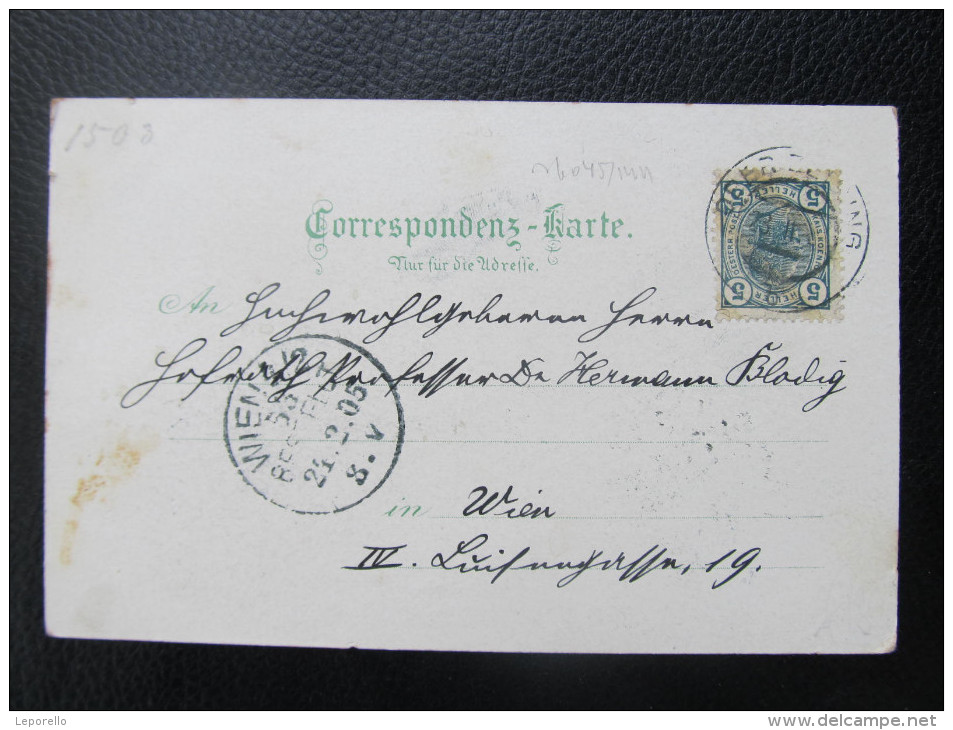 1503
Correspondenz-Karte.
Nur für die Adresse.
An Hochwohlgeboren Herrn
Hofrath Professor Dr Hermann Blodig
in Wien
IV. Luisengasse, 19.
5 HELLER 5
5 HELLER 5
WIEN
BESTELLT
21.2.05
8.V
Leporello
delcampe.net